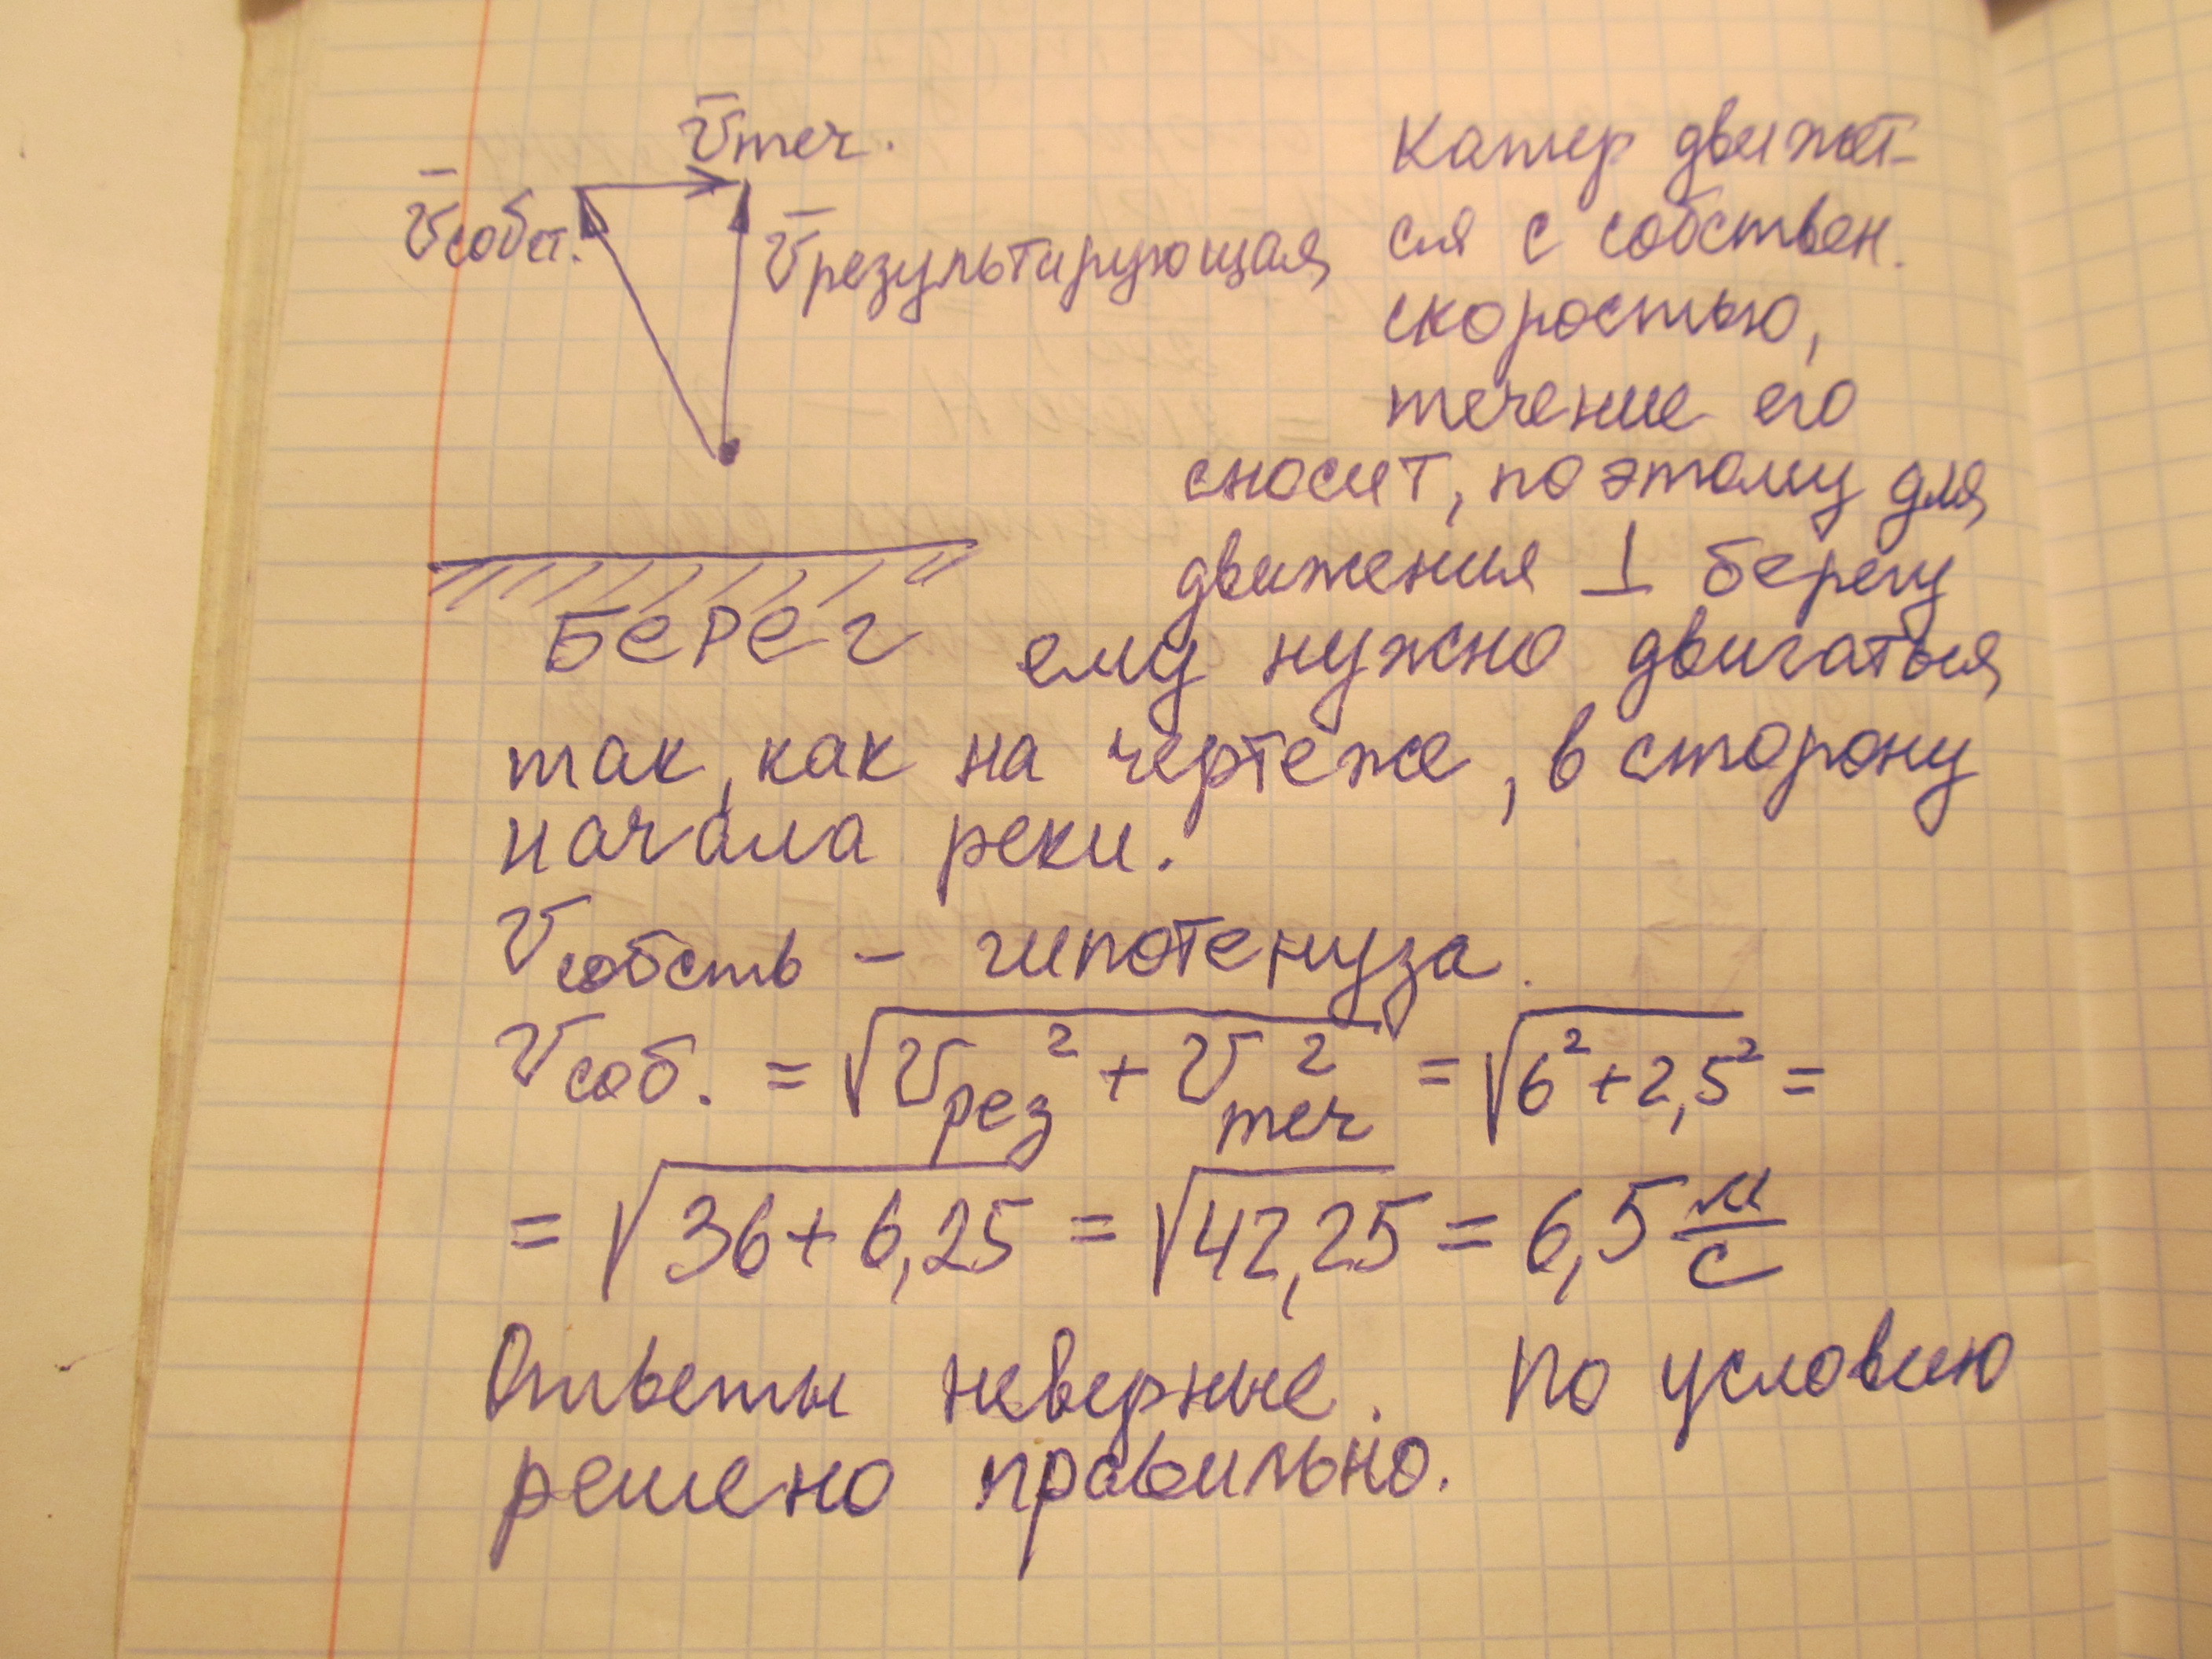 v̅теч.
v̅собст.
v̅результирующая
Катер движет-
ся с собствен.
скоростью,
течение его
сносит, поэтому для
движения ⊥ берегу
Берег
ему нужно двигаться
так, как на чертеже, в сторону
начала реки.
Vсобств - гипотенуза.
Vсоб. = √(Vрез² + Vтеч²) = √(6² + 2,5²) =
= √(36 + 6,25) = √42,25 = 6,5 м/с
Ответы неверные. По условию
решено правильно.